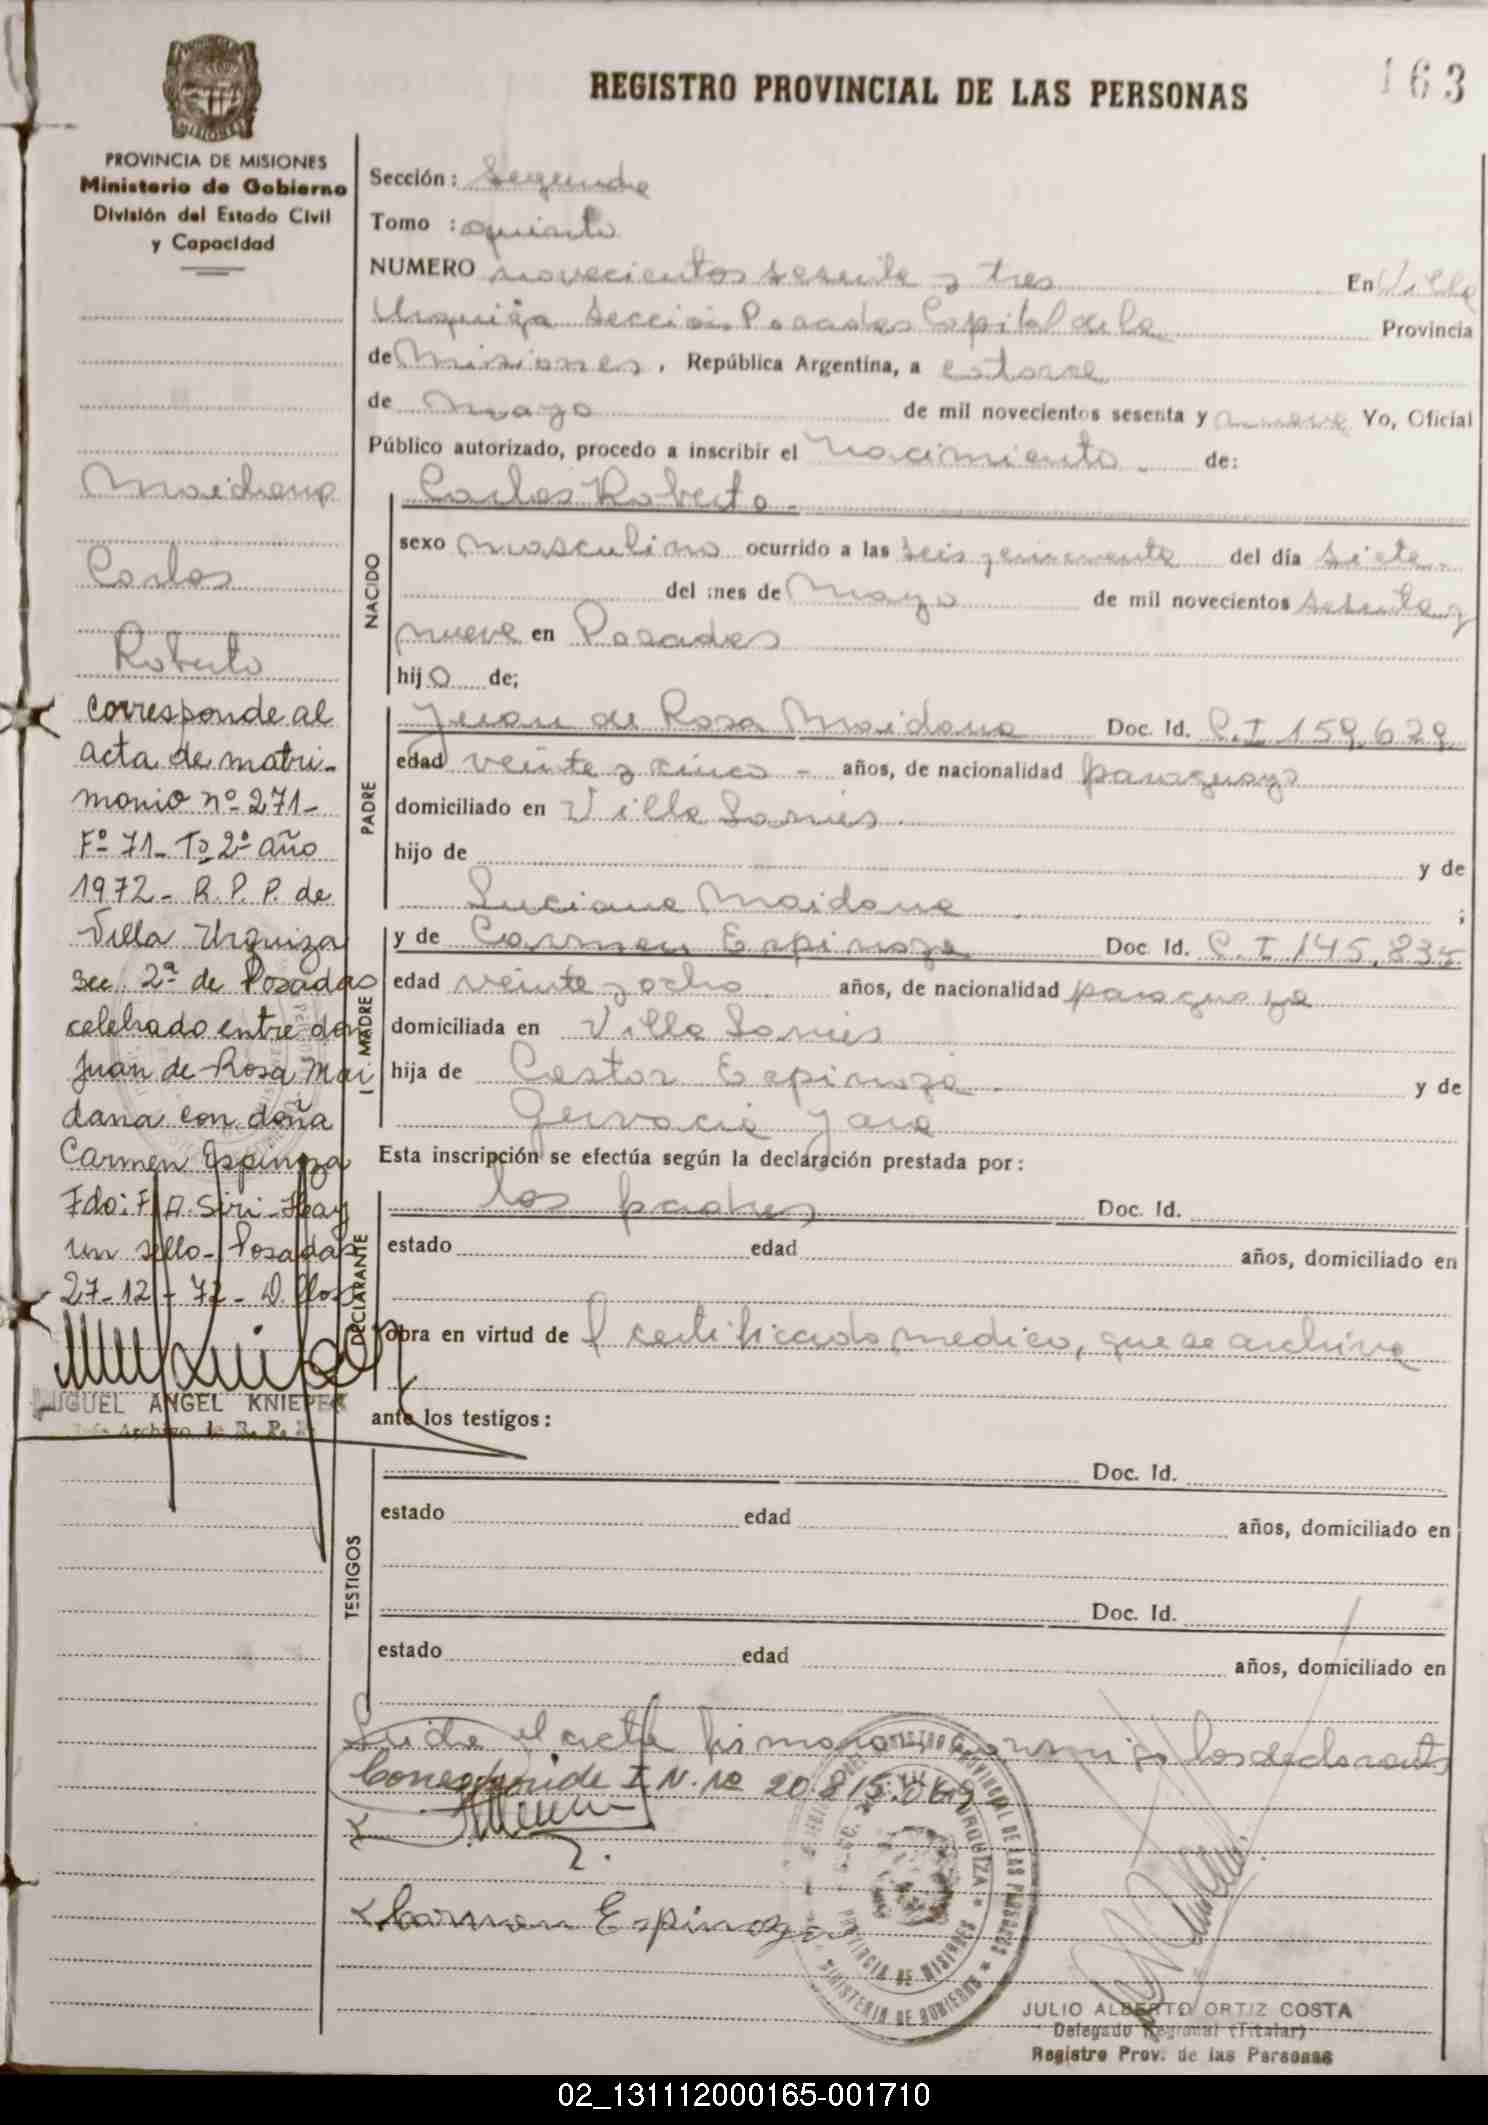 163
REGISTRO PROVINCIAL DE LAS PERSONAS
MISIONES
PROVINCIA DE MISIONES
Ministerio de Gobierno
División del Estado Civil
y Capacidad
Sección: Segunda
Tomo : quinto
NUMERO novecientos sesenta y tres En Villa
Urquiza Sección Posadas Capital de la Provincia
de Misiones, República Argentina, a catorce
de mayo de mil novecientos sesenta y nueve Yo, Oficial
Público autorizado, procedo a inscribir el nacimiento de:
Carlos Roberto
NACIDO
sexo masculino ocurrido a las seis y del día siete
del mes de mayo de mil novecientos sesenta y
nueve en Posadas
hijo de;
PADRE
Juan de Rosa Maidana Doc. Id. C.I 159.629
edad veinte y cinco - años, de nacionalidad paraguayo
domiciliado en Villa
hijo de y de
Luciana Maidana ;
MADRE
y de Carmen Espinoza Doc. Id. C.I.145.835
edad veinte y ocho años, de nacionalidad paraguaya
domiciliada en Villa
hija de Castor Espinoza y de
Gervacia Jara
Esta inscripción se efectúa según la declaración prestada por:
DECLARANTE
los padres Doc. Id.
estado edad años, domiciliado en
obra en virtud de certificado medico, que se archiva
ante los testigos:
TESTIGOS
Doc. Id.
estado edad años, domiciliado en
Doc. Id.
estado edad años, domiciliado en
Leida el acta firman conmigo los declarantes
Corresponde I.N. No 20.815.069
Carmen Espinoza
REGISTRO PROVINCIAL DE LAS PERSONAS
MINISTERIO DE GOBIERNO
PROVINCIA DE MISIONES
URQUIZA
JULIO ALBERTO ORTIZ COSTA
Delegado Regional (Titular)
Registro Prov. de las Personas
Maidana
Carlos
Roberto
Corresponde al
acta de matri-
monio nº 271-
Fº 71- Tº 2º año
1972- R. P. P. de
Villa Urquiza
sec 2ª de Posadas
celebrado entre don
Juan de Rosa Mai
dana con doña
Carmen Espinoza
Fdo: F. A. Siri - Hay
un sello- Posadas
27-12-72-
MIGUEL ANGEL KNIEPER
Jefe Archivo de R. P. P.
02_131112000165-001710